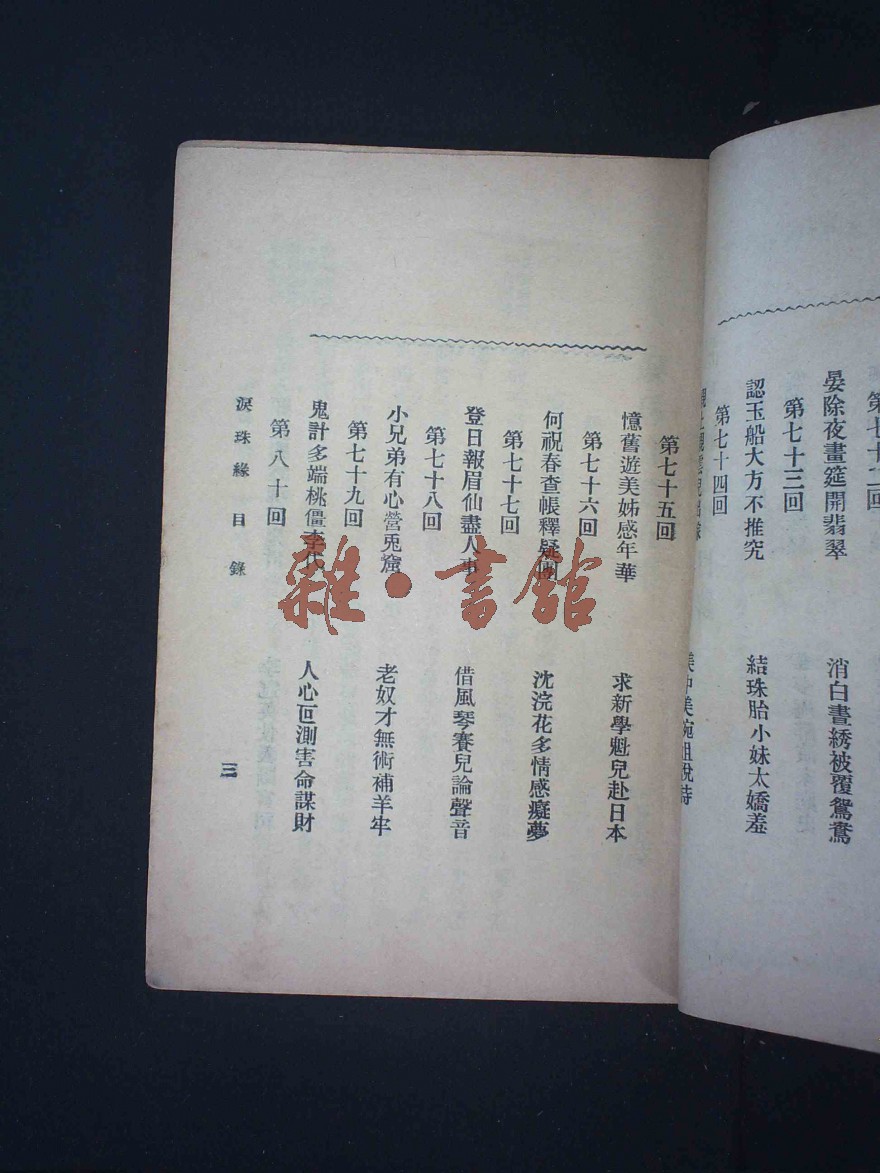 第七十二回
晏除夜畫筵開翡翠 消白晝綉被覆鴛鴦
第七十三回
認玉船大方不推究 結珠胎小妹太嬌羞
第七十四回
第七十五回
憶舊遊美姊感年華 求新學魁兒赴日本
第七十六回
何祝春查帳釋疑團 沈浣花多情感癡夢
第七十七回
登日報眉仙盡人事 借風琴賽兒論聲音
第七十八回
小兄弟有心營兎窟 老奴才無術補羊牢
第七十九回
鬼計多端桃僵李代 人心叵測害命謀財
第八十回
淚珠緣 目錄 三
雜·書館